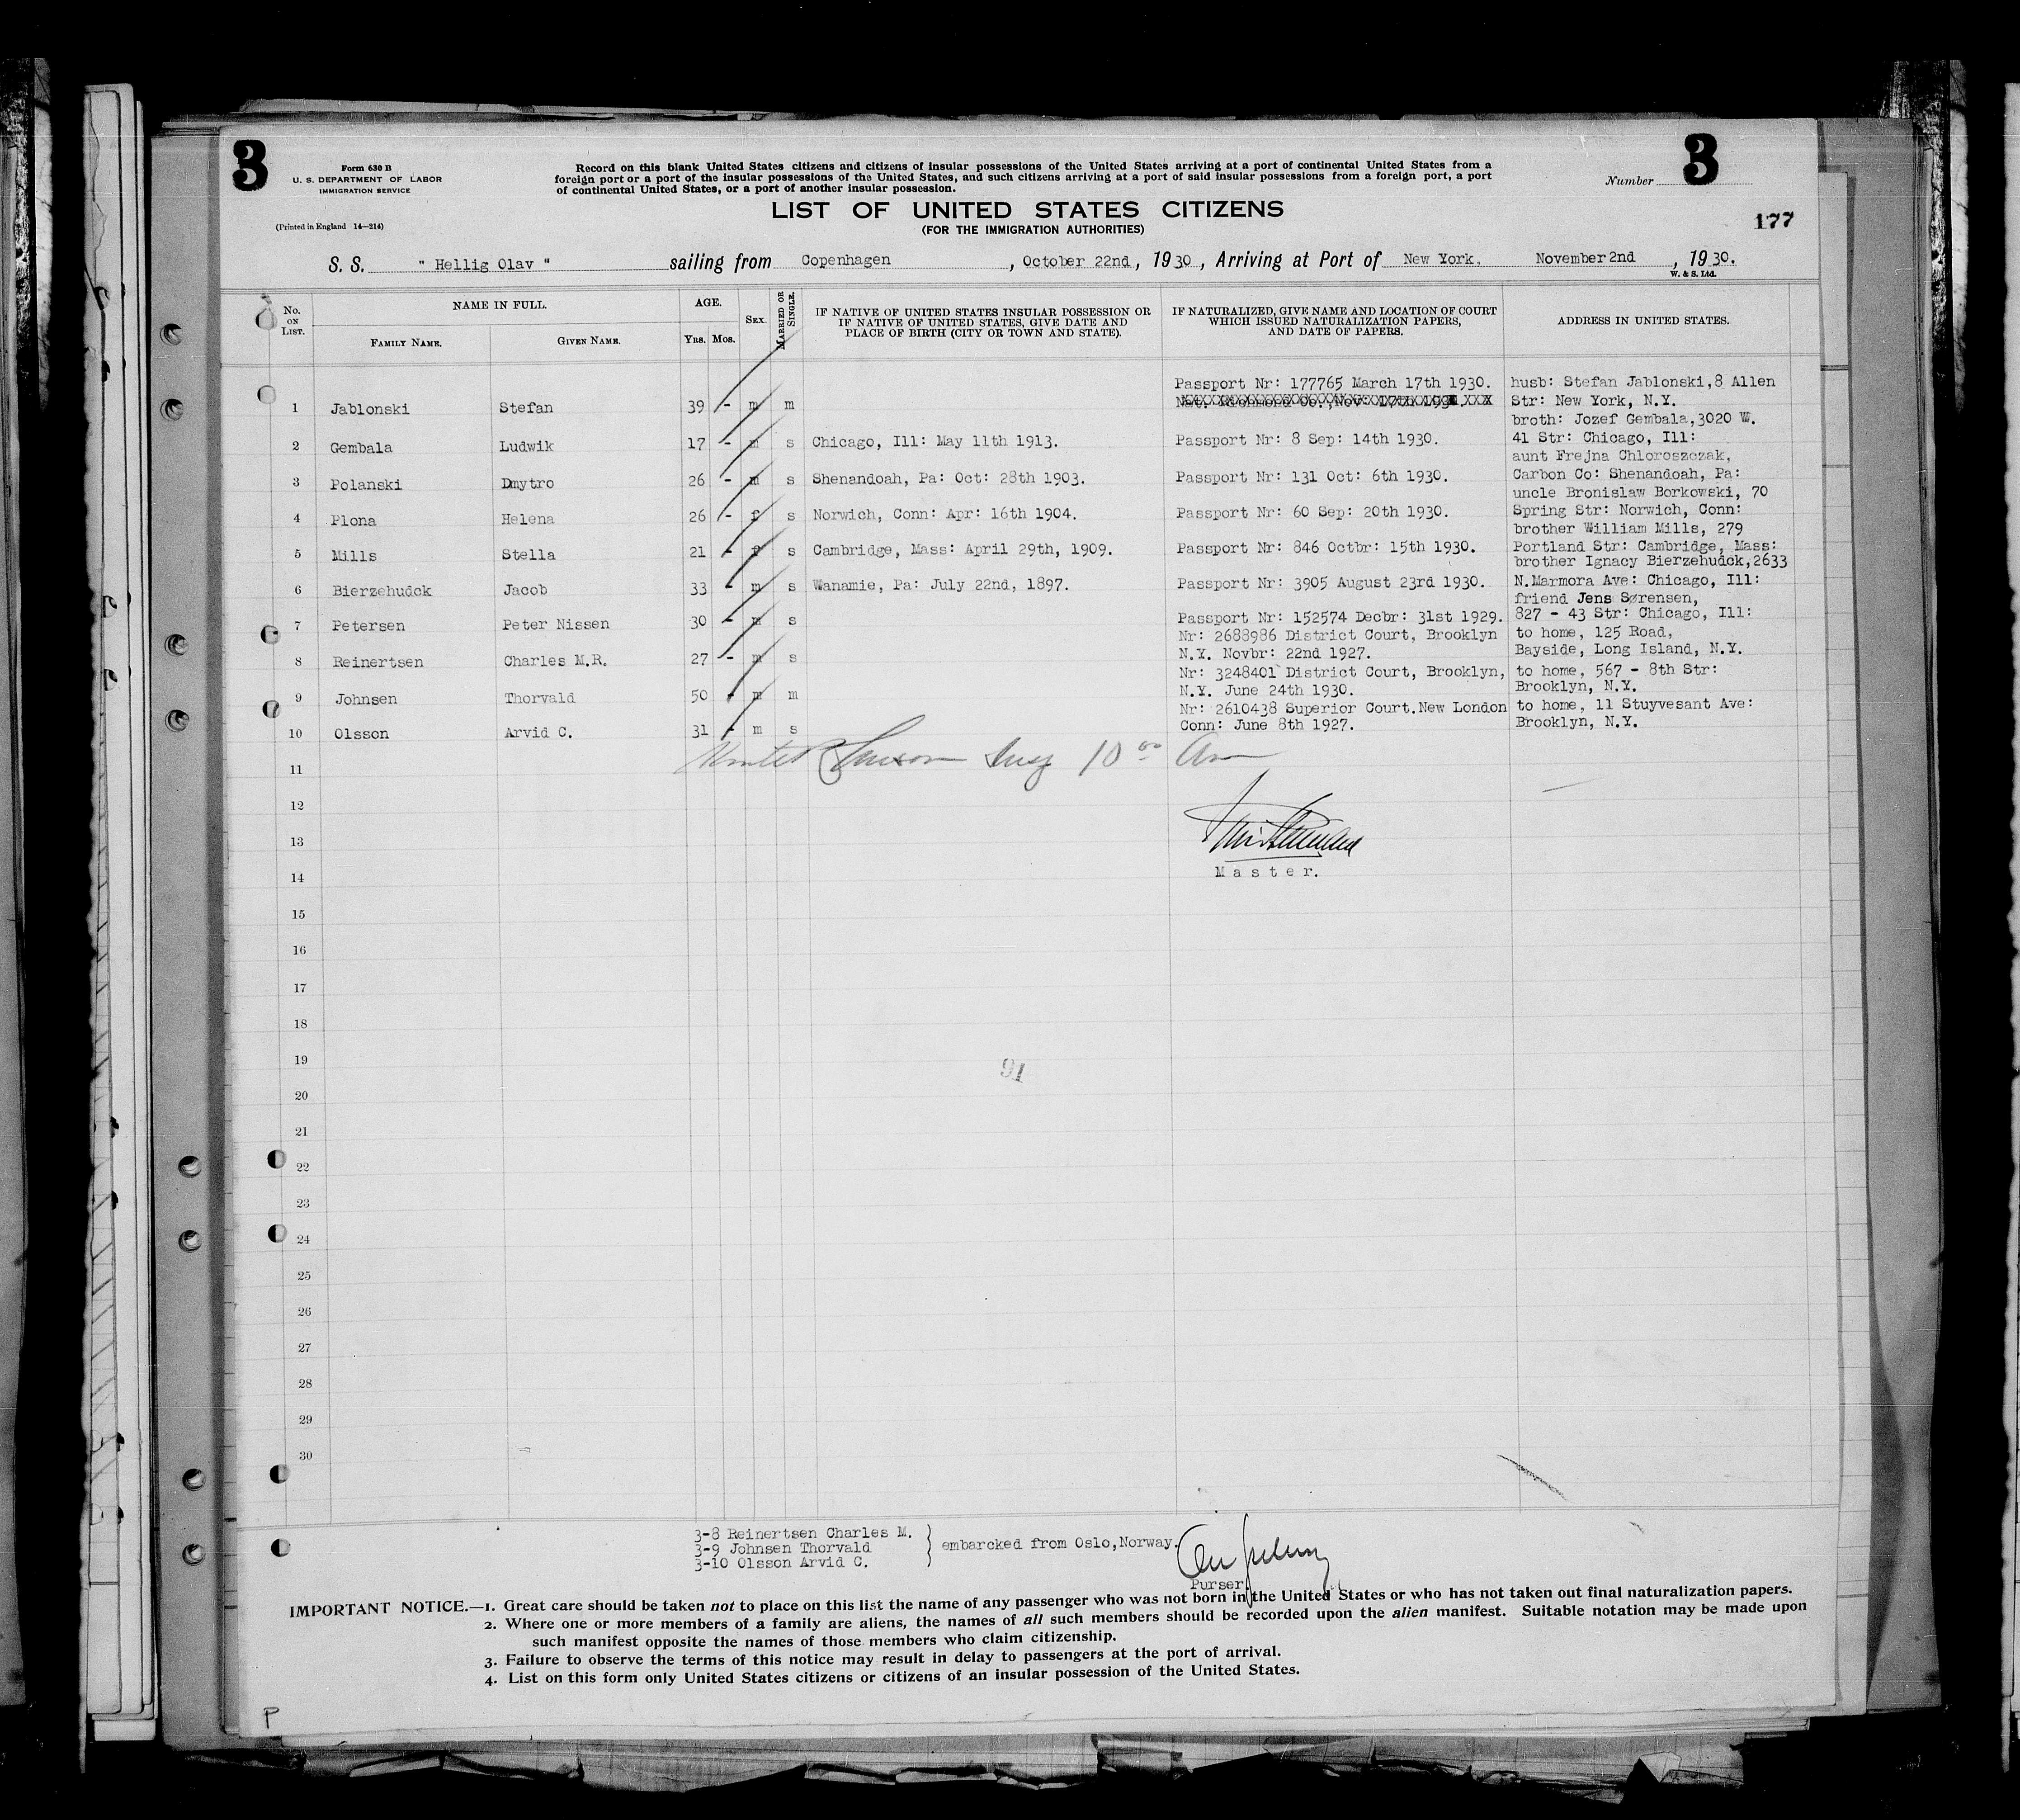 3
Form 630 B
U. S. DEPARTMENT OF LABOR
IMMIGRATION SERVICE
(Printed in England 14—214)
Record on this blank United States citizens and citizens of insular possessions of the United States arriving at a port of continental United States from a
foreign port or a port of the insular possessions of the United States, and such citizens arriving at a port of said insular possessions from a foreign port, a port
of continental United States, or a port of another insular possession.
Number 3
LIST OF UNITED STATES CITIZENS
(FOR THE IMMIGRATION AUTHORITIES)
177
S. S. " Hellig Olav " sailing from Copenhagen, October 22nd, 1930, Arriving at Port of New York, November 2nd, 1930.
W. & S. Ltd.
No. ON LIST. NAME IN FULL. FAMILY NAME. GIVEN NAME. AGE. Yrs. Mos. SEX. MARRIED OR SINGLE. IF NATIVE OF UNITED STATES INSULAR POSSESSION OR IF NATIVE OF UNITED STATES, GIVE DATE AND PLACE OF BIRTH (CITY OR TOWN AND STATE). IF NATURALIZED, GIVE NAME AND LOCATION OF COURT WHICH ISSUED NATURALIZATION PAPERS, AND DATE OF PAPERS. ADDRESS IN UNITED STATES.
Passport Nr: 177765 March 17th 1930. husb: Stefan Jablonski, 8 Allen
1 Jablonski Stefan 39 - m m Str: New York, N.Y.
broth: Jozef Gembala, 3020 W.
2 Gembala Ludwik 17 - m s Chicago, Ill: May 11th 1913. Passport Nr: 8 Sep: 14th 1930. 41 Str: Chicago, Ill:
aunt Frejna Chloroszczak,
3 Polanski Dmytro 26 - m s Shenandoah, Pa: Oct: 28th 1903. Passport Nr: 131 Oct: 6th 1930. Carbon Co: Shenandoah, Pa:
uncle Bronislaw Borkowski, 70
4 Plona Helena 26 - f s Norwich, Conn: Apr: 16th 1904. Passport Nr: 60 Sep: 20th 1930. Spring Str: Norwich, Conn:
brother William Mills, 279
5 Mills Stella 21 - f s Cambridge, Mass: April 29th, 1909. Passport Nr: 846 Octbr: 15th 1930. Portland Str: Cambridge, Mass:
brother Ignacy Bierzehudck, 2633
6 Bierzehudck Jacob 33 - m s Wanamie, Pa: July 22nd, 1897. Passport Nr: 3905 August 23rd 1930. N.Marmora Ave: Chicago, Ill:
friend Jens Sørensen,
7 Petersen Peter Nissen 30 - m s Passport Nr: 152574 Decbr: 31st 1929. 827 - 43 Str: Chicago, Ill:
Nr: 2688986 District Court, Brooklyn to home, 125 Road,
8 Reinertsen Charles M.R. 27 - m s N.Y. Novbr: 22nd 1927. Bayside, Long Island, N.Y.
Nr: 3248401 District Court, Brooklyn, to home, 567 - 8th Str:
9 Johnsen Thorvald 50 - m m N.Y. June 24th 1930. Brooklyn, N.Y.
Nr: 2610438 Superior Court.New London to home, 11 Stuyvesant Ave:
10 Olsson Arvid C. 31 - m s Conn: June 8th 1927. Brooklyn, N.Y.
11
12
13
14 Master.
15
16
17
18
19
91
20
21
22
23
24
25
26
27
28
29
30
3-8 Reinertsen Charles M.
3-9 Johnsen Thorvald } embarcked from Oslo, Norway.
3-10 Olsson Arvid C.
Purser.
IMPORTANT NOTICE.—1. Great care should be taken not to place on this list the name of any passenger who was not born in the United States or who has not taken out final naturalization papers.
2. Where one or more members of a family are aliens, the names of all such members should be recorded upon the alien manifest. Suitable notation may be made upon
such manifest opposite the names of those members who claim citizenship.
3. Failure to observe the terms of this notice may result in delay to passengers at the port of arrival.
4. List on this form only United States citizens or citizens of an insular possession of the United States.
P